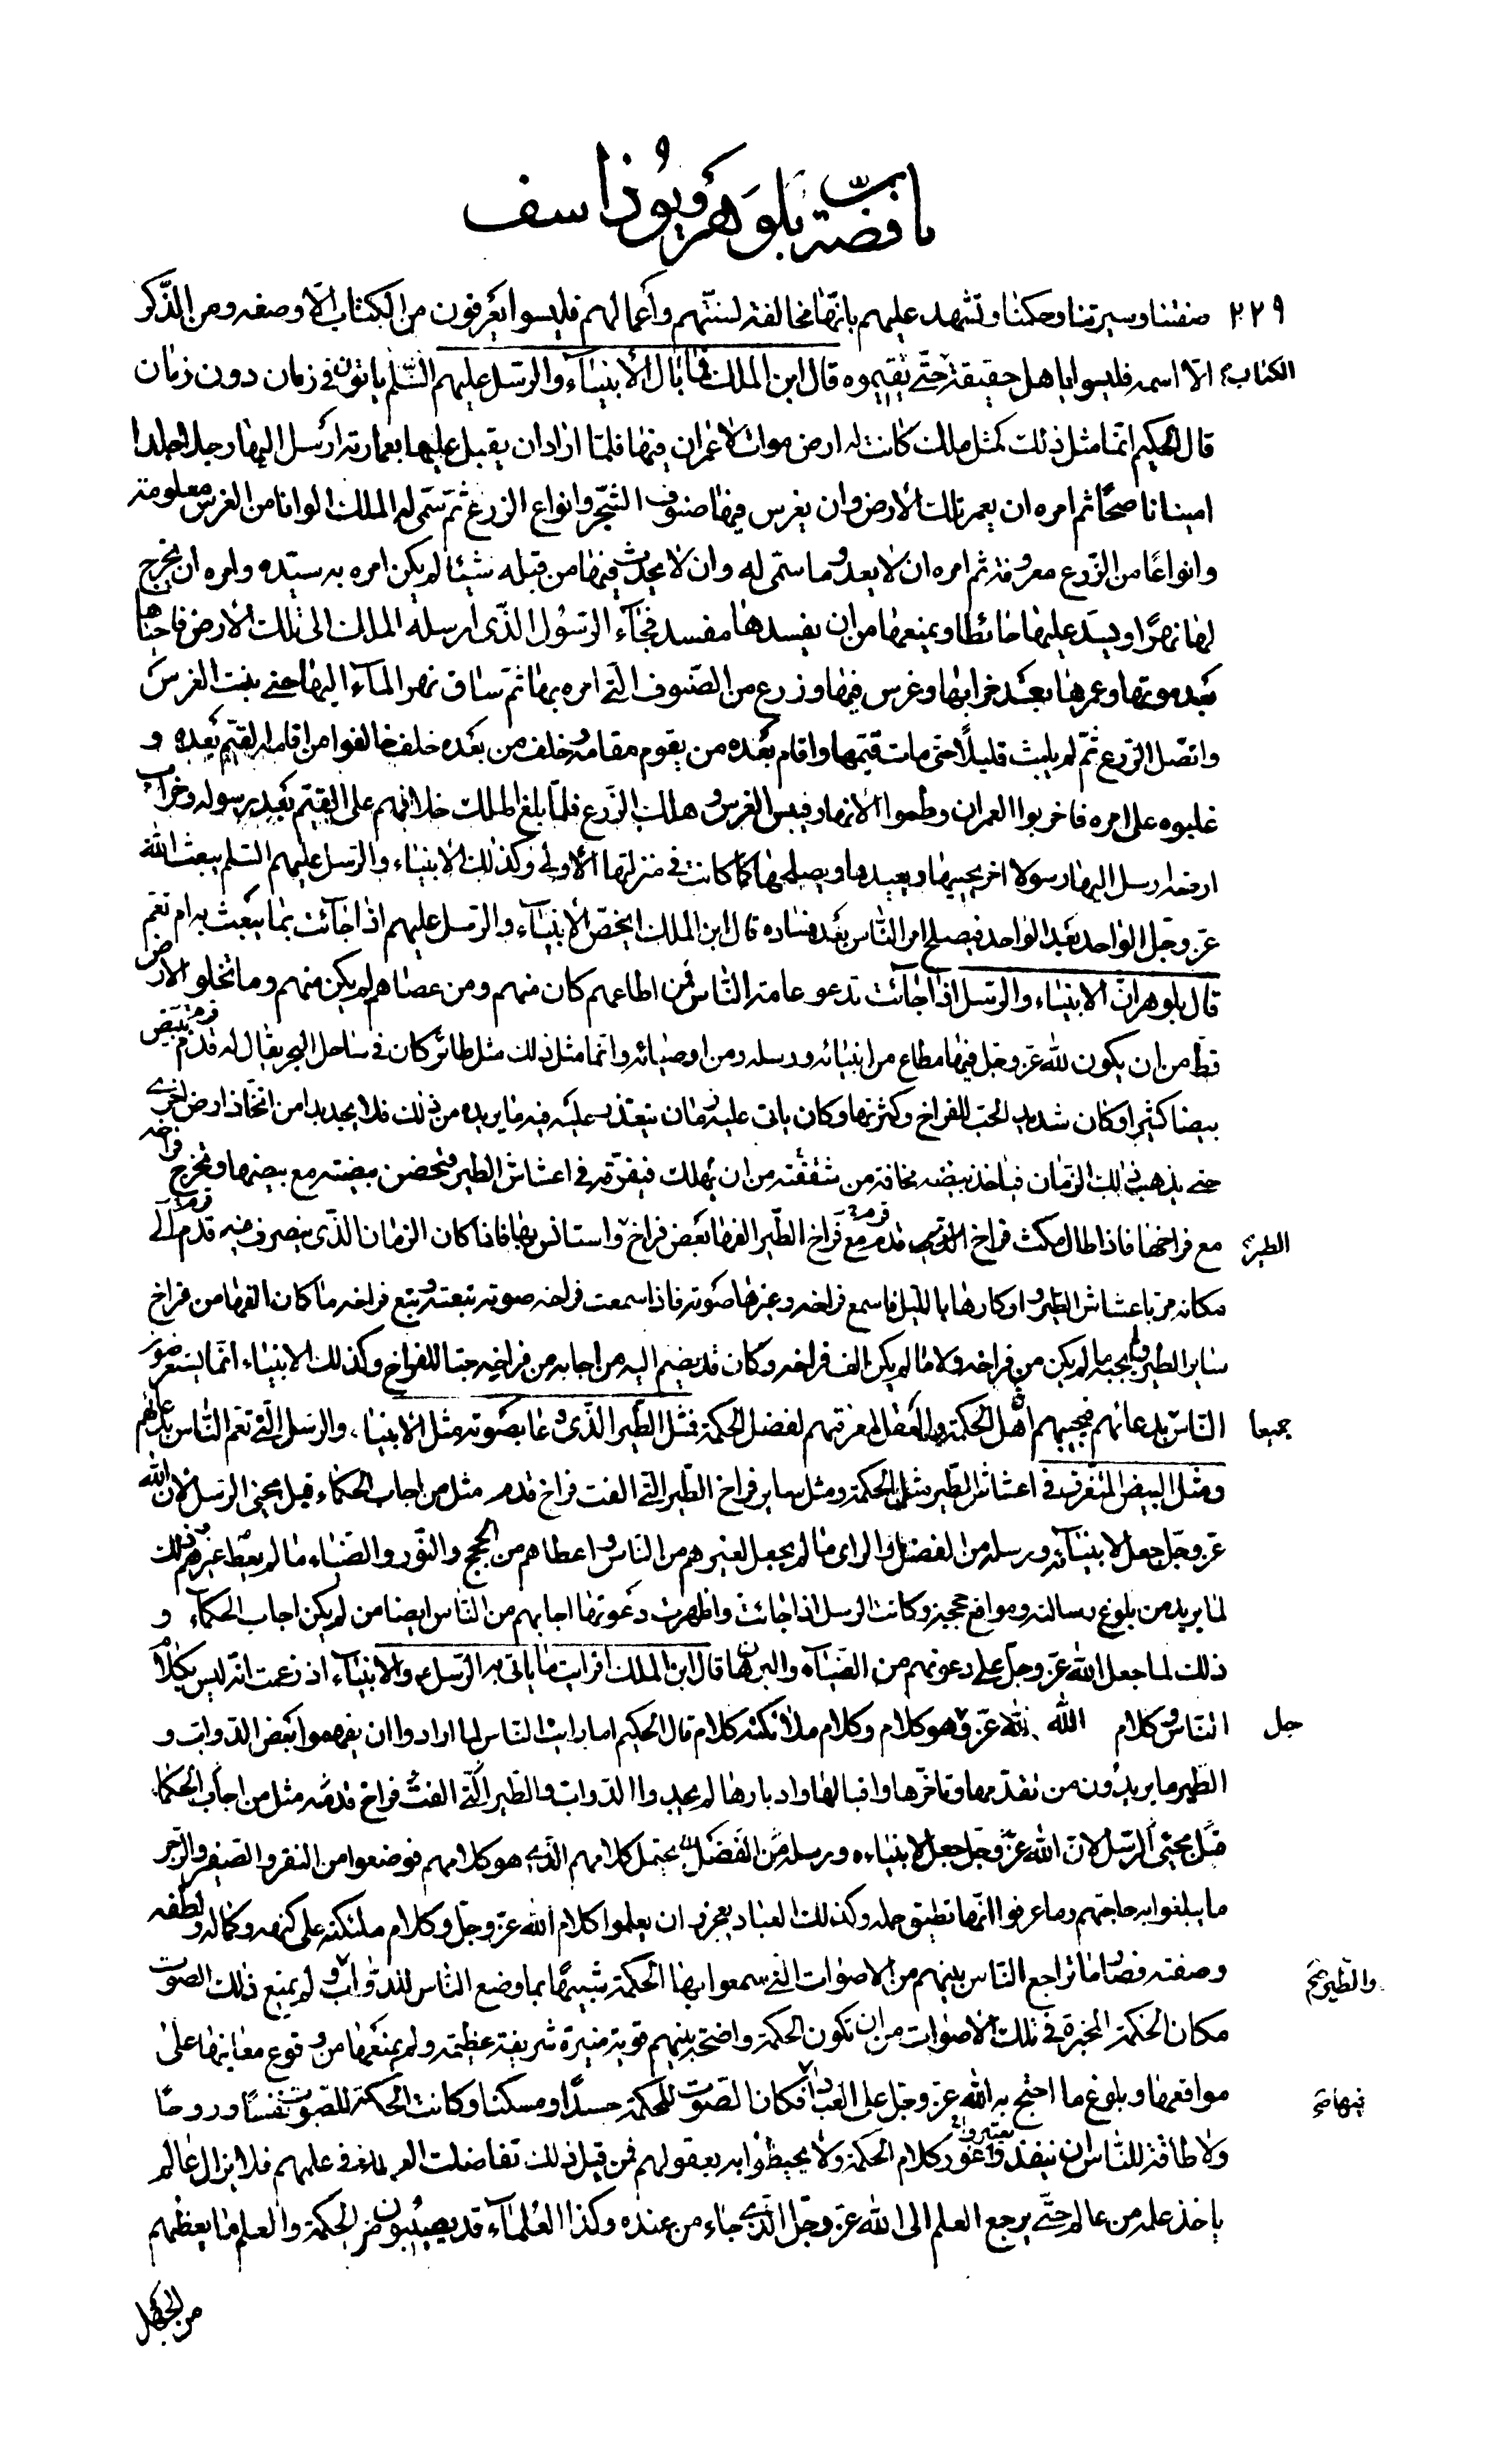 باب قصّة بلوهر ويوذاسف
٢٢٩ صفتنا وسيرتنا وحكمنا وتشهد عليهم بانّها مخالفة لسنّتهم وأعمالهم فليسوا يعرفون من الكتاب الّا وصفه ومن الذّكر
الكتاب الّا اسمه فليسوا باهل حقيقة حتّى يقيموه قال ابن الملك فما بال الأنبياء والرّسل عليهم السّلم ياتون في زمان دون زمان
قال الحكيم انّما مثل ذلك كمثل ملك كانت له ارض موات لا عمران فيها فلمّا اراد ان يقبل عليها بعمارته ارسل اليها رجلا جلدا
امينا ناصحًا ثم امره ان يعمر تلك الأرض وان يغرس فيها صنوف الشّجر وانواع الزرع ثمّ سمّى له الملك الوانا من الغرس معلومة
وانواعًا من الزّرع معروفة ثم امره ان لا يعدو ما سمّى له وان لا يحدث فيها من قبله شيئا لم يكن امره به سيّده وامره ان يخرج
لها نهرًا ويسدّ عليها حائطا ويمنعها من ان يفسدها مفسد فجاء الرّسول الّذى ارسله الملك الى تلك الأرض فاحياها
بعد موتها وعمرها بعد خرابها وغرس فيها وزرع من الصّنوف الّتى امره بها ثمّ ساق نهر الماء اليها حتى نبت الغرس
واتّصل الزّرع ثمّ لم يلبث قليلًا حتى مات قيّمها واقام بعده من يقوم مقامه وخلف من بعده خلف خالفوا من اقامه القيّم بعده و
غلبوه على امره فاخربوا العمران وطموا الأنهار فيبس الغرس وهلك الزّرع فلمّا بلغ الملك خلافهم على القيّم بعد رسوله وخراب
ارضه ارسل اليها رسولا اخر يحييها ويعيدها ويصلحها كما كانت في منزلتها الأولى وكذلك الأنبياء والرّسل عليهم السّلم يبعث الله
عزّ وجلّ الواحد بعد الواحد فيصلح امر النّاس بعد فساده قال ابن الملك ايخصّ الأنبياء والرّسل عليهم اذا جائت بما يبعث به ام تعمّ
قال بلوهر انّ الأنبياء والرّسل اذا جائت تدعو عامّة النّاس فمن اطاعهم كان منهم ومن عصاهم لم يكن منهم وما تخلو الأرض
قطّ من ان يكون لله عزّ وجلّ فيها مطاع من انبيائه ورسله ومن اوصيائه وانّما مثل ذلك مثل طائر كان في ساحل البحر يقال له قدم يبيض
بيضا كثيرا وكان شديد الحبّ للفراخ وكثرتها وكان ياتى عليه زمان يتعذر عليه فيه ما يريده من ذلك فلا يجد بدا من اتّخاذ ارض اخرى
حتى يذهب ذلك الزّمان فياخذ بيضه مخافة من شفقته من ان يهلك فيفرّقه في اعشاش الطير فتحضن بيضته مع بيضها وتخرج فراخه
الطير مع فراخها فاذا طال مكث فراخ قدم مع فراخ الطّير الفها بعض فراخ واستانس بها فاذا كان الزمان الّذى ينصرف فيه قدم الى
مكانه مرّ باعشاش الطّير واوكارها بالليل فاسمع فراخه وغيرها صوته فاذا سمعت فراخه صوته تبعته وتبع فراخه ما كان الفها من فراخ
ساير الطير ولم يجبه ما لم يكن من فراخه ولا ما لم يكن الف فراخه وكان قد يضم اليه من اجابه من فراخه حبا للفراخ وكذلك الأنبياء انّما
جميعا النّاس بدعائهم فيجيبهم اهل الحكمة والعقل لمعرفتهم لفضل الحكمة فمثل الطّير الّذى دعا بصوته مثل الأنبياء والرسل الّتى تعمّ النّاس بدعائهم
ومثل البيض المتفرق في اعشاش الطّير مثل الحكمة ومثل ساير فراخ الطّير الّتى الفت فراخ قدم مثل من اجاب الحكماء قبل مجئ الرسل لانّ الله
عزّ وجلّ جعل لأنبيائه ورسله من الفضل والراى ما لم يجعل لغيرهم من النّاس واعطاهم من الحجج والنّور والضّياء ما لم يعط غيرهم وذلك
لما يريد من بلوغ رسالته ومواقع حججه وكانت الرسل اذا جائت واظهرت دعوتها اجابهم من النّاس ايضا من لم يكن اجاب الحكماء و
ذلك لما جعل الله عزّ وجلّ على دعوتهم من الضّياء والبرهان قال ابن الملك افرايت ما ياتى به الرّسل والأنبياء اذ زعمت انّه ليس بكلام
جل النّاس وكلام الله لله عزّ و هو كلام وكلام ملائكته كلام قال الحكيم اما رايت النّاس لما ارادوا ان يفهموا بعض الدّوابّ و
الطّير ما يريدون من تقدّمها وتاخّرها واقبالها وادبارها لم يجدوا الدّواب والطّير الّتى الفت فراخ قدم مثل من اجاب الحكماء
قبل مجئ الرّسل لانّ الله عزّ وجلّ جعل لأنبياءه ورسله من الفضل يحتمل كلامهم الّذى هو كلامهم فوضعوا من النقر والصّفير والزّجر
ما يبلغوا به حاجتهم وما عرفوا انّها تطيق حمله وكذلك العباد يعجزوا ان يعلموا كلام الله عزّ وجلّ وكلام ملئكته على كنهه وكماله ولطفه
والطير وصفته فصار ما تراجع النّاس بينهم من الأصوات الّتى سمعوا بها الحكمة شبيهًا بما وضع النّاس للدّوابّ ولم يمنع ذلك الصّوت
مكان الحكمة المخبرة في تلك الأصوات من ان تكون الحكمة واضحة بينهم قوية منيرة شريفة عظيمة ولم يمنعها من وقوع معانيها على
مواقعها وبلوغ ما احتج به الله عزّ وجلّ على العباد فيها فكان الصّوت للحكمة جسدًا ومسكنا وكانت الحكمة للصّوت نفسًا وروحًا
ولا طاقة للنّاس ان ينفذوا غور كلام الحكمة ولا يحيطوا به بعقولهم فمن قبل ذلك تفاضلت العلماء في علمهم فلا يزال عالم
ياخذ علمه من عالم حتّى يرجع العلم الى الله عزّ وجلّ الّذى جاء من عنده وكذا العلماء قد يصيبون من الحكمة والعلم ما يعظمهم
من الجهل